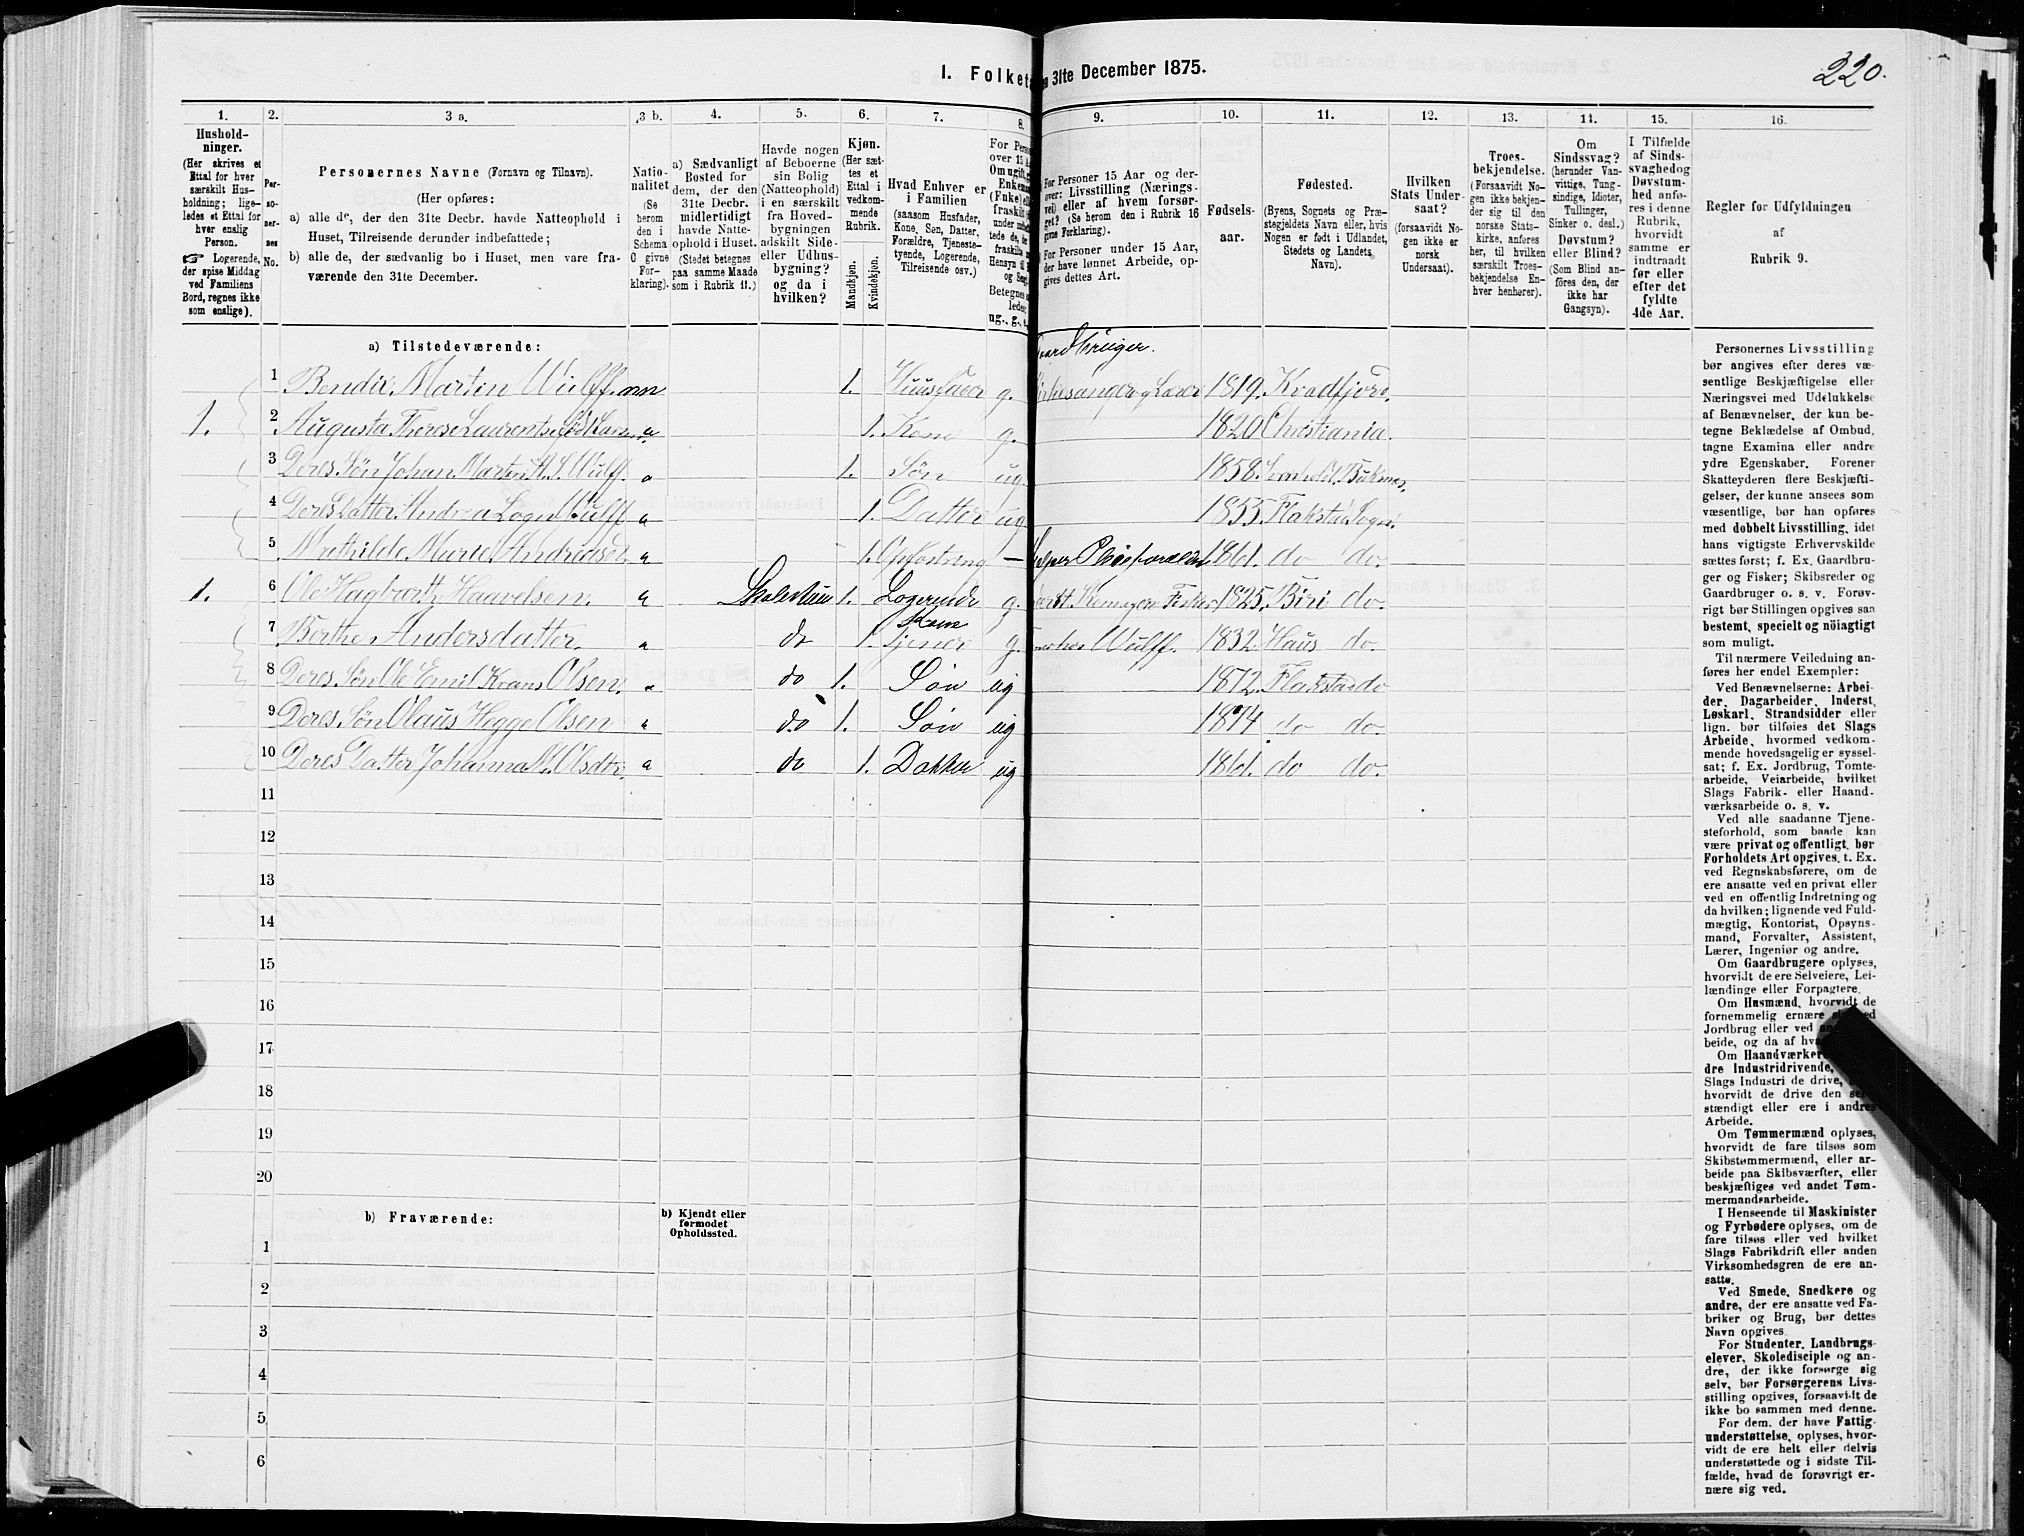 220.
1. Folket
n 31te December 1875.
1.
2.
3 a.
3 b.
4.
5.
6.
7.
8.
9.
10.
11.
12.
13.
14.
15.
16.
Hushold-
ninger.
(Her skrives et
Ettal for hver
særskilt Hus-
holdning; lige-
ledes et Ettal for
hver enslig
Person.
☞ Logerende,
der spise Middag
ved Familiens
Bord, regnes ikke
som enslige).
Per-
so-
ner-
nes
No.
Personernes Navne (Fornavn og Tilnavn).
(Her opføres:
a) alle de, der den 31te Decbr. havde Natteophold i
Huset, Tilreisende derunder indbefattede;
b) alle de, der sædvanlig bo i Huset, men vare fra-
værende den 31te December.
Natio-
nalitet
(Se
herom
den i
Schema
O givne
For-
klaring).
a) Sædvanligt
Bosted for
dem, der den
31te Decbr.
midlertidigt
havde Natte-
ophold i Huset.
(Stedet betegnes
paa samme Maade
som i Rubrik 11.)
Havde nogen
af Beboerne
sin Bolig
(Natteophold)
i en særskilt
fra Hoved-
bygningen
adskilt Side-
eller Udhus-
bygning?
og da i
hvilken?
Kjøn.
(Her sæt-
tes et
Ettal i
vedkom-
mende
Rubrik.
Mandkjøn.
Kvindekjøn.
Hvad Enhver er
i Familien
(saasom Husfader,
Kone, Søn, Datter,
Forældre, Tjeneste-
tyende, Logerende,
Tilreisende osv.)
For Perso
over 15 Aa
Om ugift, g
Enkem
(Enke) e
fraskilt
under
tede de,
fraskilte
Hensyn ti
og Seng
Betegnes
ledes
ug., g., e.
For Personer 15 Aar og der-
over: Livsstilling (Nærings-
vei) eller af hvem forsør-
get? (Se herom den i Rubrik 16
givne Forklaring).
For Personer under 15 Aar,
der have lønnet Arbeide, op-
gives dettes Art.
Fødsels-
aar.
Fødested.
(Byens, Sognets og Præ-
stegjeldets Navn eller, hvis
Nogen er født i Udlandet,
Stedets og Landets
Navn).
Hvilken
Stats Under-
saat?
(forsaavidt No-
gen ikke er
norsk
Undersaat).
Troes-
bekjendelse.
(Forsaavidt No-
gen ikke bekjen-
der sig til den
norske Stats-
kirke, anføres
her, til hvilken
særskilt Troes-
bekjendelse En-
hver henhører).
Om
Sindssvag?
(herunder Van-
vittige, Tung-
sindige, Idioter,
Tullinger,
Sinker o. desl.)
Døvstum?
eller Blind?
(Som Blind an-
føres den, der
ikke har
Gangsyn).
I Tilfælde
af Sinds-
svaghed og
Døvstum-
hed anfø-
res i denne
Rubrik,
hvorvidt
samme er
indtraadt
før eller
efter det
fyldte
4de Aar.
Regler for Udfyldningen
af
Rubrik 9.
a) Tilstedeværende:
Gaardbruger.
1 Bendix Martin Wulff. nn 1. Huusfader g. Kirkesanger og Lærer 1819. Kvadfjord.
1. 2 Augusta Therese Laurentse født Larsen. a 1. Kone g. 1820 Christiania.
3 Deres Søn Johan Marten H. S. Wulff. a 1. Søn ug. 1858.
4 Deres Datter Andrea Wulff a 1. Datter ug 1855. Flakstad Sogn.
5 Mathilde Marie Andreasd. a 1. Opfostring — 1861. do do.
1. 6 Ole Hagbart Haavelsen. a 1. Logerende g. 1825. Biri do.
Kone
7 Berthe Andersdatter. a do 1. Tjener g. hos Wulff. 1832. Haus do.
8 Deres Søn Ole Emil Krans Olsen. a do 1. Søn ug 1872. Flakstad do
9 Deres Søn Olaus Hegge Olsen a do 1. Søn ug 1874 do do.
10 Deres Datter Johanna M. Olsdtr. a do 1. Datter ug 1861. do do.
11
12
13
14
15
16
17
18
19
20
b) Fraværende:
b) Kjendt eller
formodet
Opholdssted.
1
2
3
4
5
6
Personernes Livsstilling
bør angives efter deres væ-
sentlige Beskjæftigelse eller
Næringsvei med Udelukkelse
af Benævnelser, der kun be-
tegne Beklædelse af Ombud,
tagne Examina eller andre
ydre Egenskaber. Forener
Skatteyderen flere Beskjæfti-
gelser, der kunne ansees som
væsentlige, bør han opføres
med dobbelt Livsstilling, idet
hans vigtigste Erhvervskilde
sættes først; f. Ex. Gaardbru-
ger og Fisker; Skibsreder og
Gaardbruger o. s. v. Forøv-
rigt bør Stillingen opgives saa
bestemt, specielt og nöiagtigt
som muligt.
Til nærmere Veiledning an-
føres her endel Exempler:
Ved Benævnelserne: Arbei-
der, Dagarbeider, Inderst,
Løskarl, Strandsidder eller
lign. bør tilføies det Slags
Arbeide, hvormed vedkom-
mende hovedsagelig er syssel-
sat; f. Ex. Jordbrug, Tomte-
arbeide, Veiarbeide, hvilket
Slags Fabrik- eller Haand-
værksarbeide o. s. v.
Ved alle saadanne Tjene-
steforhold, som baade kan
være privat og offentligt, bør
Forholdets Art opgives, t. Ex.
ved Regnskabsførere, om de
ere ansatte ved en privat eller
ved en offentlig Indretning og
da hvilken; lignende ved Fuld-
mægtig, Kontorist, Opsyns-
mand, Forvalter, Assistent,
Lærer, Ingeniør og andre.
Om Gaardbrugere oplyses,
hvorvidt de ere Selveiere, Lei-
lændinge eller Forpagtere.
Om Husmænd, hvorvidt de
fornemmelig ernære s ved
Jordbrug eller ved an
beide, og da af hv
Om Haandværkere
dre Industridrivende,
Slags Industri de drive,
hvorvidt de drive den se
stændigt eller ere i andres
Arbeide.
Om Tømmermænd oplyses,
hvorvidt de fare tilsøs som
Skibstømmermænd, eller ar-
beide paa Skibsværfter, eller
beskjæftiges ved andet Tøm-
mermandsarbeide.
I Henseende til Maskinister
og Fyrbødere oplyses, om de
fare tilsøs eller ved hvilket
Slags Fabrikdrift eller anden
Virksomhedsgren de ere an-
satte.
Ved Smede, Snedkere og
andre, der ere ansatte ved Fa-
briker og Brug, bør dettes
Navn opgives.
For Studenter, Landbrugs-
elever, Skoledisciple og an-
dre, der ikke forsørge sig
selv, bør Forsørgerens Livs-
stilling opgives, forsaavidt de
ikke bo sammen med denne.
For dem, der have Fattig-
understøttelse, oplyses, hvor-
vidt de ere helt eller delvis
understøttede og i sidste Til-
fælde, hvad de forøvrigt er-
nære sig ved.